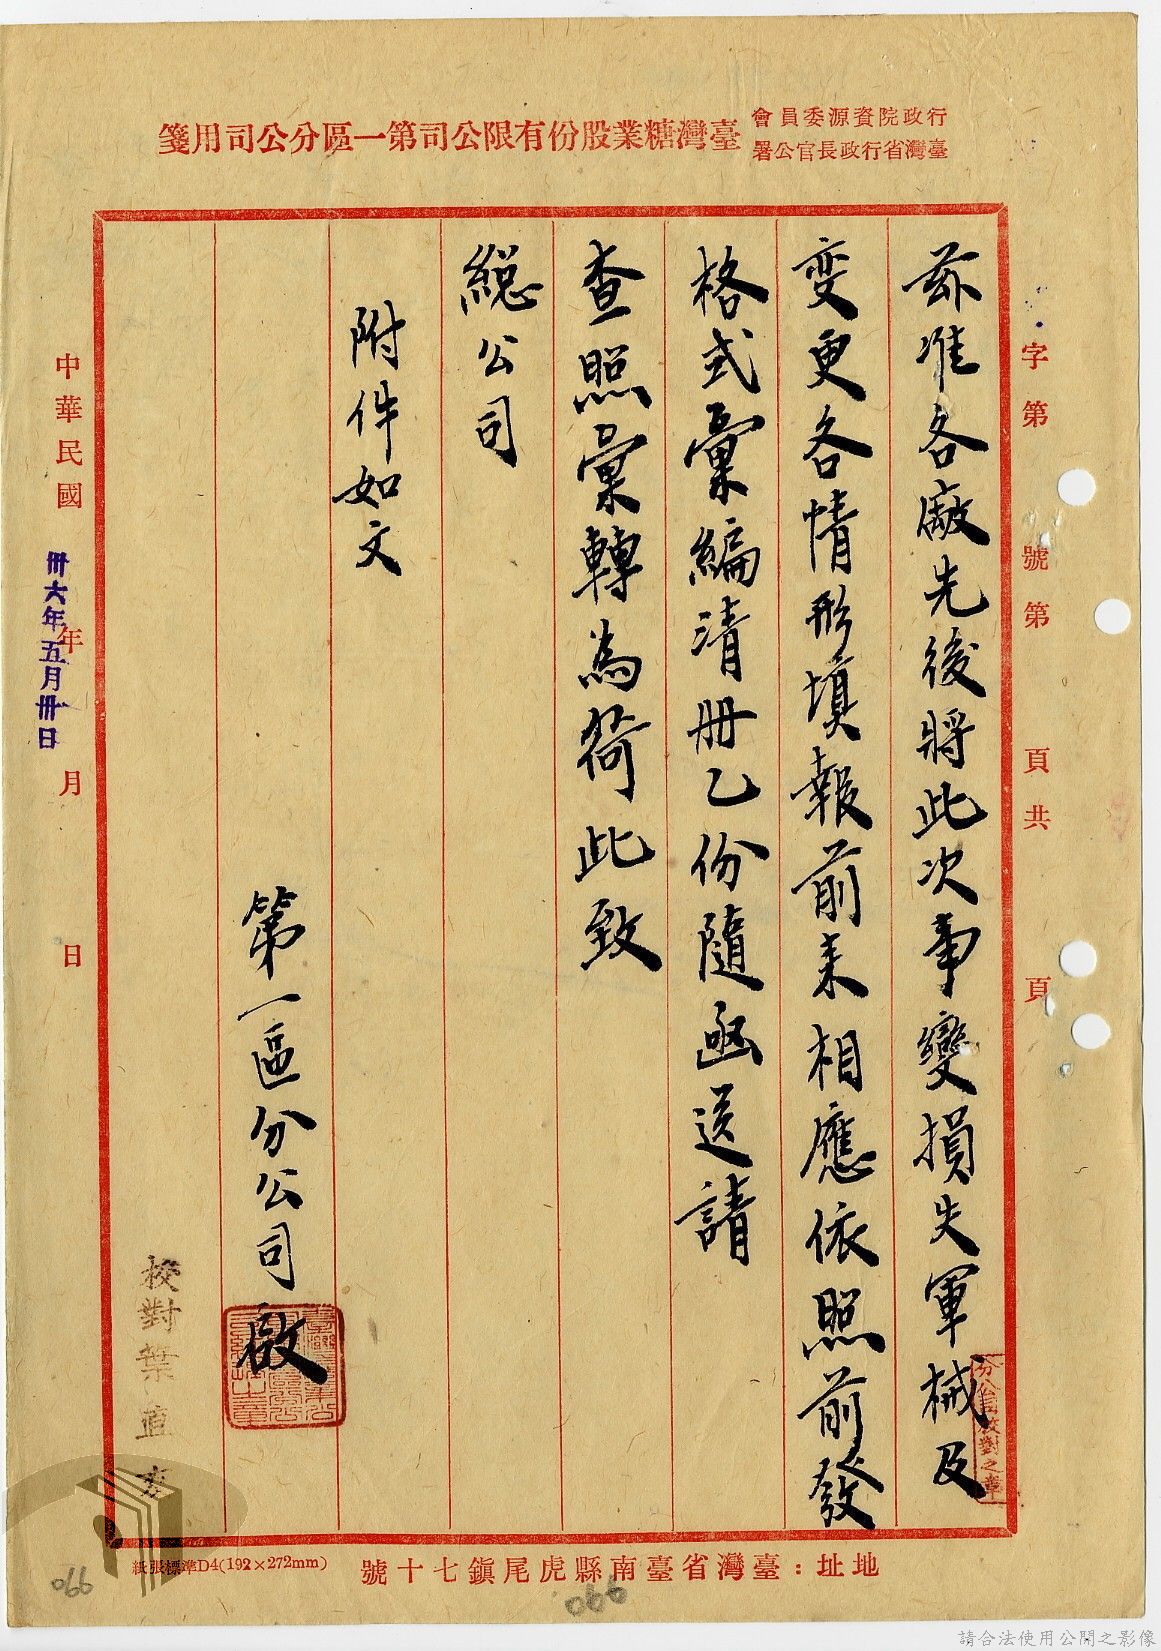 行政院資源委員會
臺灣省行政長官公署
臺灣糖業股份有限公司第一區分公司用箋
字第　號第　頁共　頁
茲准各廠先後將此次事變損失軍械及
変更各情形填報前来相應依照前發
格式彙編清册乙份隨函送請
查照彙轉為荷此致
總公司
附件如文
第一區分公司啟
校對葉直
分公司校對之章
中華民國　年　月　日
卅六年五月卅日
地址：臺灣省臺南縣虎尾鎭七十號
紙張標準D4(192×272mm)
066
066
請合法使用公開之影像